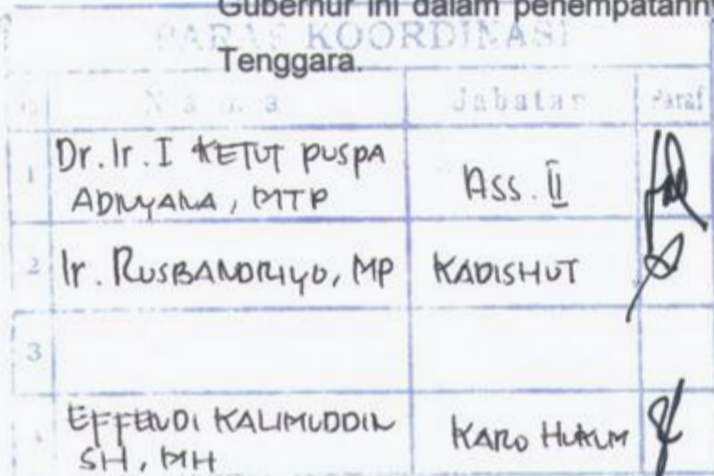 Gubernur ini dalam penempatanny
PARAF KOORDINASI
Tenggara.
N a m a Jabatan Paraf
1 Dr. Ir. I KETUT PUSPA
ADNYANA, MTP
Ass. II
2 Ir. RUSBANDRIYO, MP KADISHUT
3
EFFENDI KALIMUDDIN
SH, MH
KARO HUKUM